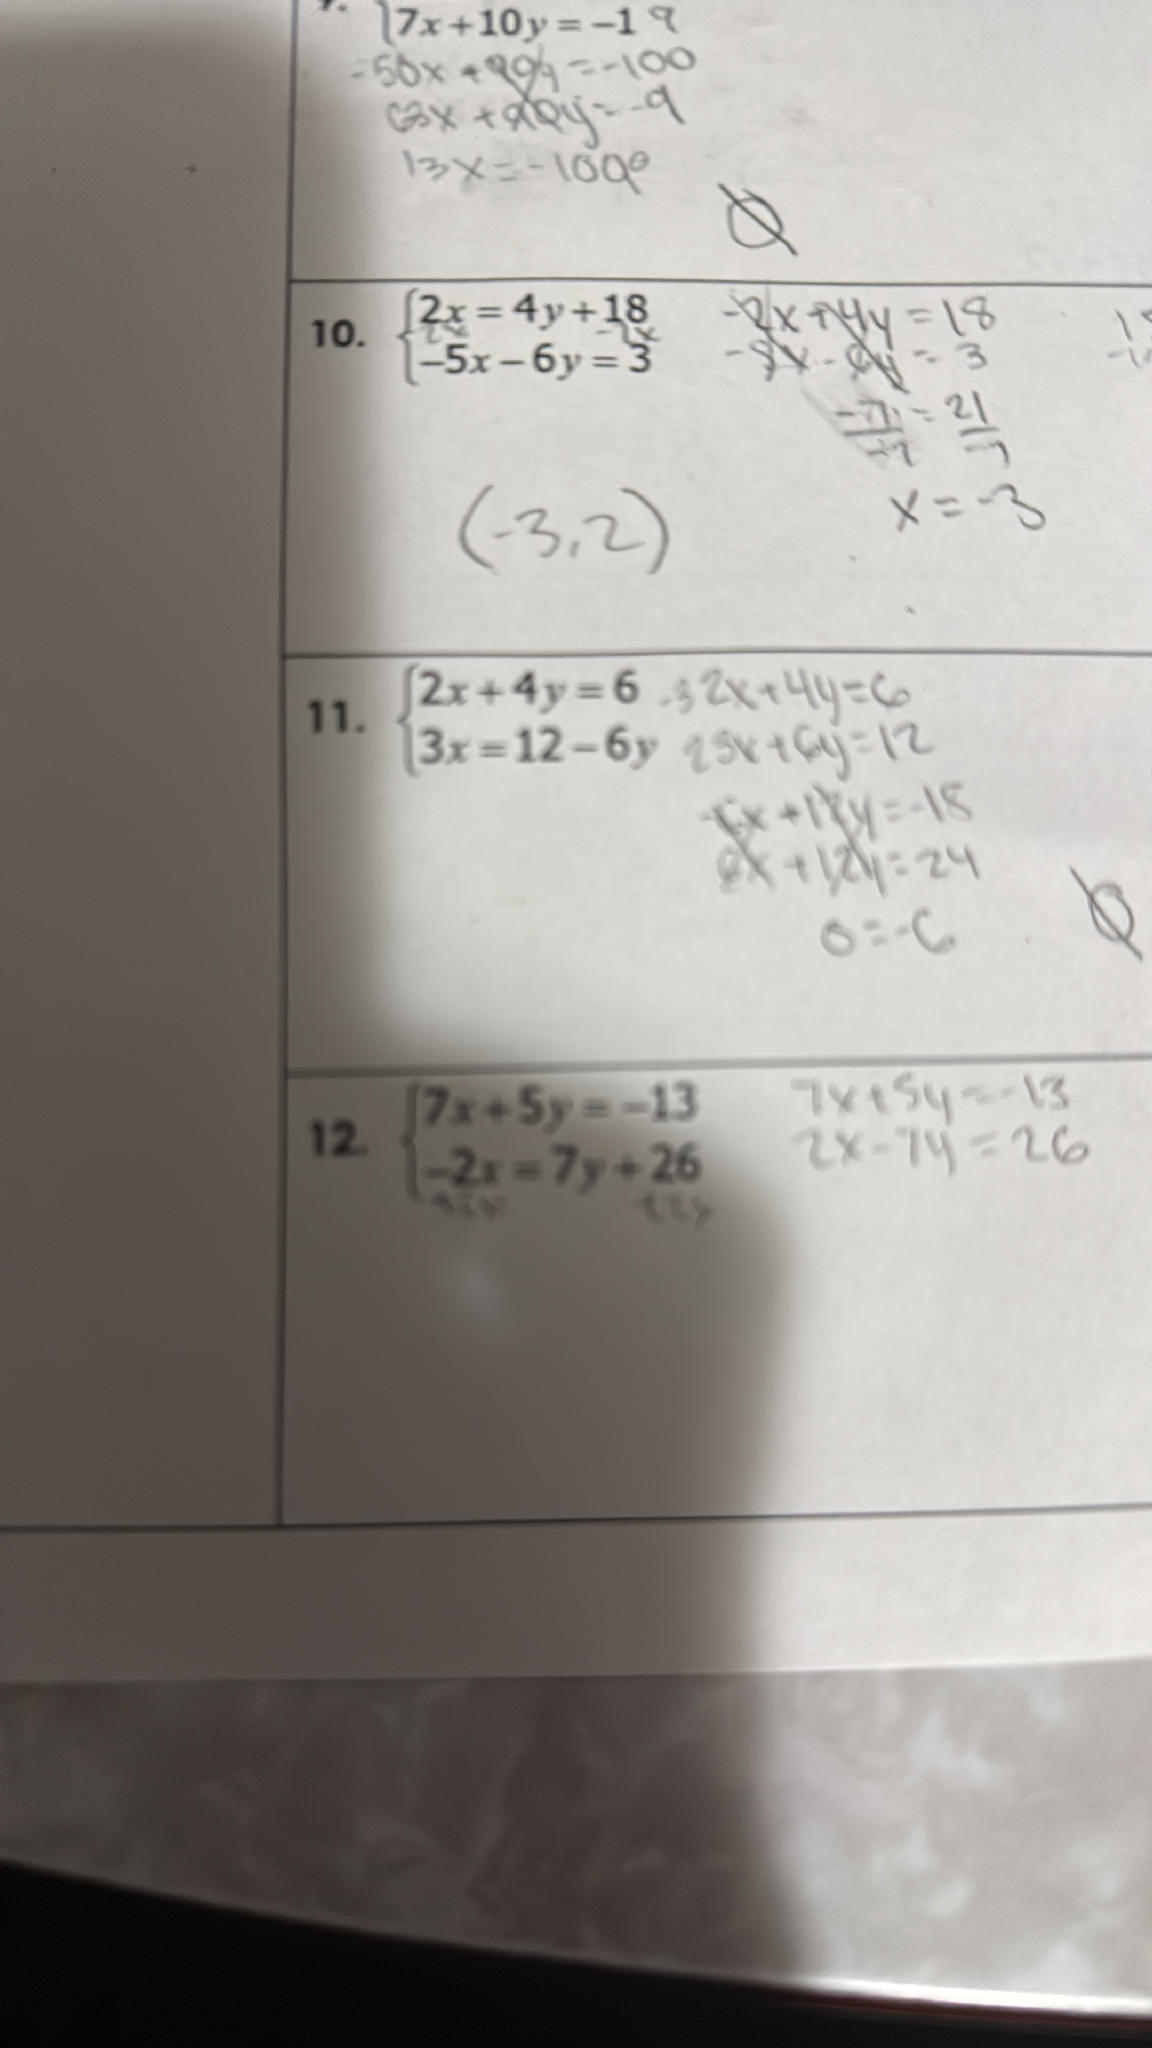 7x+10y=-1 9
-50x+90y=-100
63x+90y=-9
13x=-109
10. 2x=4y+18
-5x-6y=3
-2x -2x
-2x+4y=18
-5x-6y=3
-7x=21
-7 -7
x=-3
(-3,2)
11. 2x+4y=6
3x=12-6y
-3 2x+4y=6
2 3x+6y=12
-6x+12y=-18
6x+12y=24
0=-6
Ø
12. 7x+5y=-13
-2x=7y+26
+2x +2x
7x+5y=-13
2x-7y=26